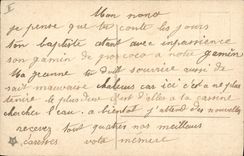 II
Mon nono
je pense que tu conte les jours
ton baptiste étant avec impatience
son gamin de pococo a notre gamin
Ma jeanne tu doit sourire aussi de
sait mauvaise chaleurs car ici c'est a ne plus
tenire le plus dur c'est d'elles a la casine
chercher l'eau. a bientot j'attend des nouvelles
recevez tout quatres nos meilleurs
caresses votre mémére